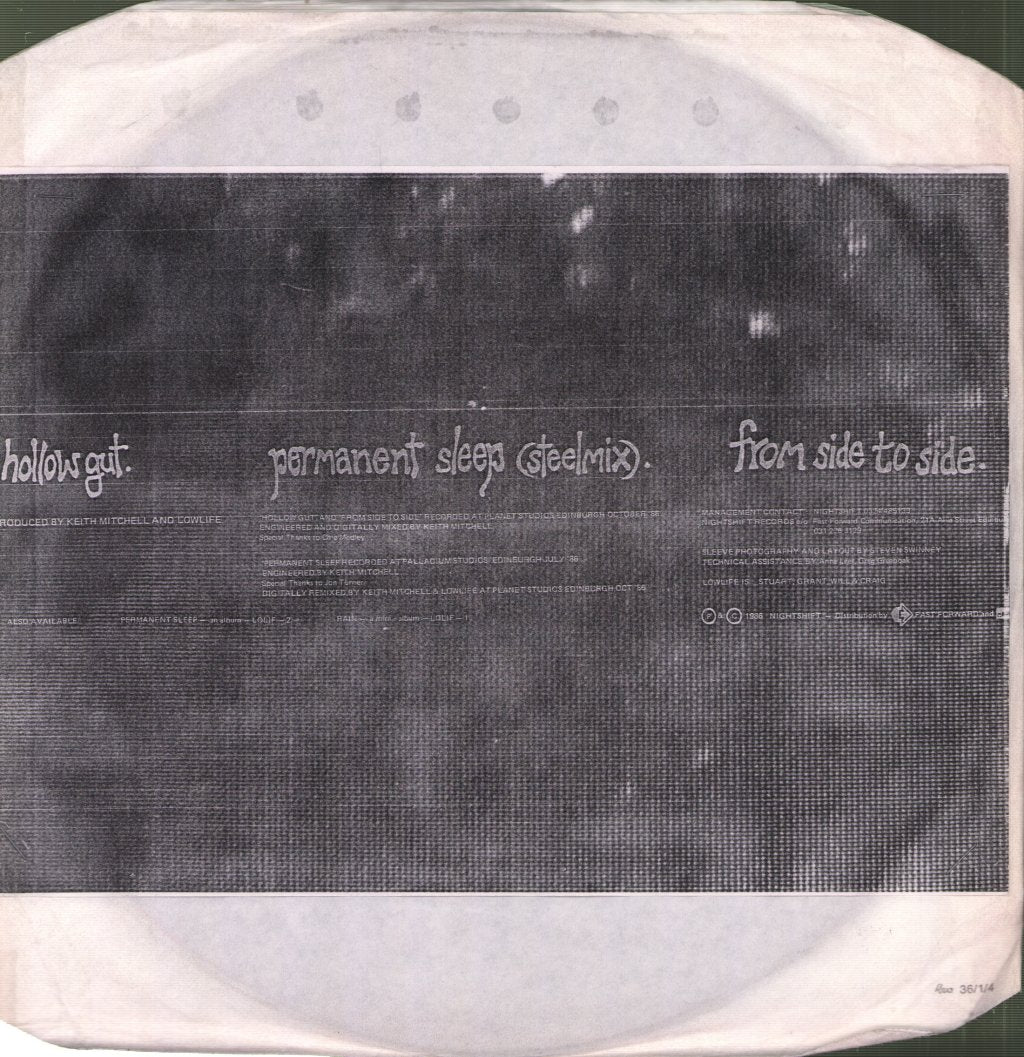 hollow gut.
permanent sleep (steelmix).
from side to side.
RODUCED BY KEITH MITCHELL AND LOWLIFE
'HOLLOW GUT' AND 'FROM SIDE TO SIDE' RECORDED AT PLANET STUDIOS EDINBURGH OCTOBER '86
ENGINEERED AND DIGITALLY MIXED BY KEITH MITCHELL
Special Thanks to Medley
'PERMANENT SLEEP' RECORDED AT PALLADIUM STUDIOS EDINBURGH JULY '86
ENGINEERED BY KEITH MITCHELL
Special Thanks to Jon Turner
DIGITALLY REMIXED BY KEITH MITCHELL & LOWLIFE AT PLANET STUDIOS EDINBURGH OCT '86
MANAGEMENT CONTACT
NIGHTSHIFT RECORDS c/o Fast Forward Communication, 21A Street
SLEEVE PHOTOGRAPHY AND LAYOUT BY STEVEN SWINNEY
TECHNICAL ASSISTANCE BY: Anne Lee, Craig
LOWLIFE IS... STUART, GRANT, WILL & CRAIG
ALSO AVAILABLE PERMANENT SLEEP — an album — LOLIF — 2 RAIN — a mini - album — LOLIF — 1
Ⓟ & Ⓒ 1986 NIGHTSHIFT — Distribution by FAST FORWARD and
36/1/4